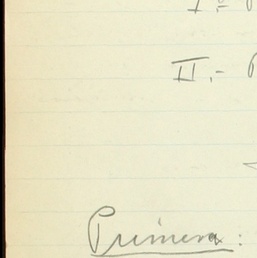 I.-
II.-
Primera: